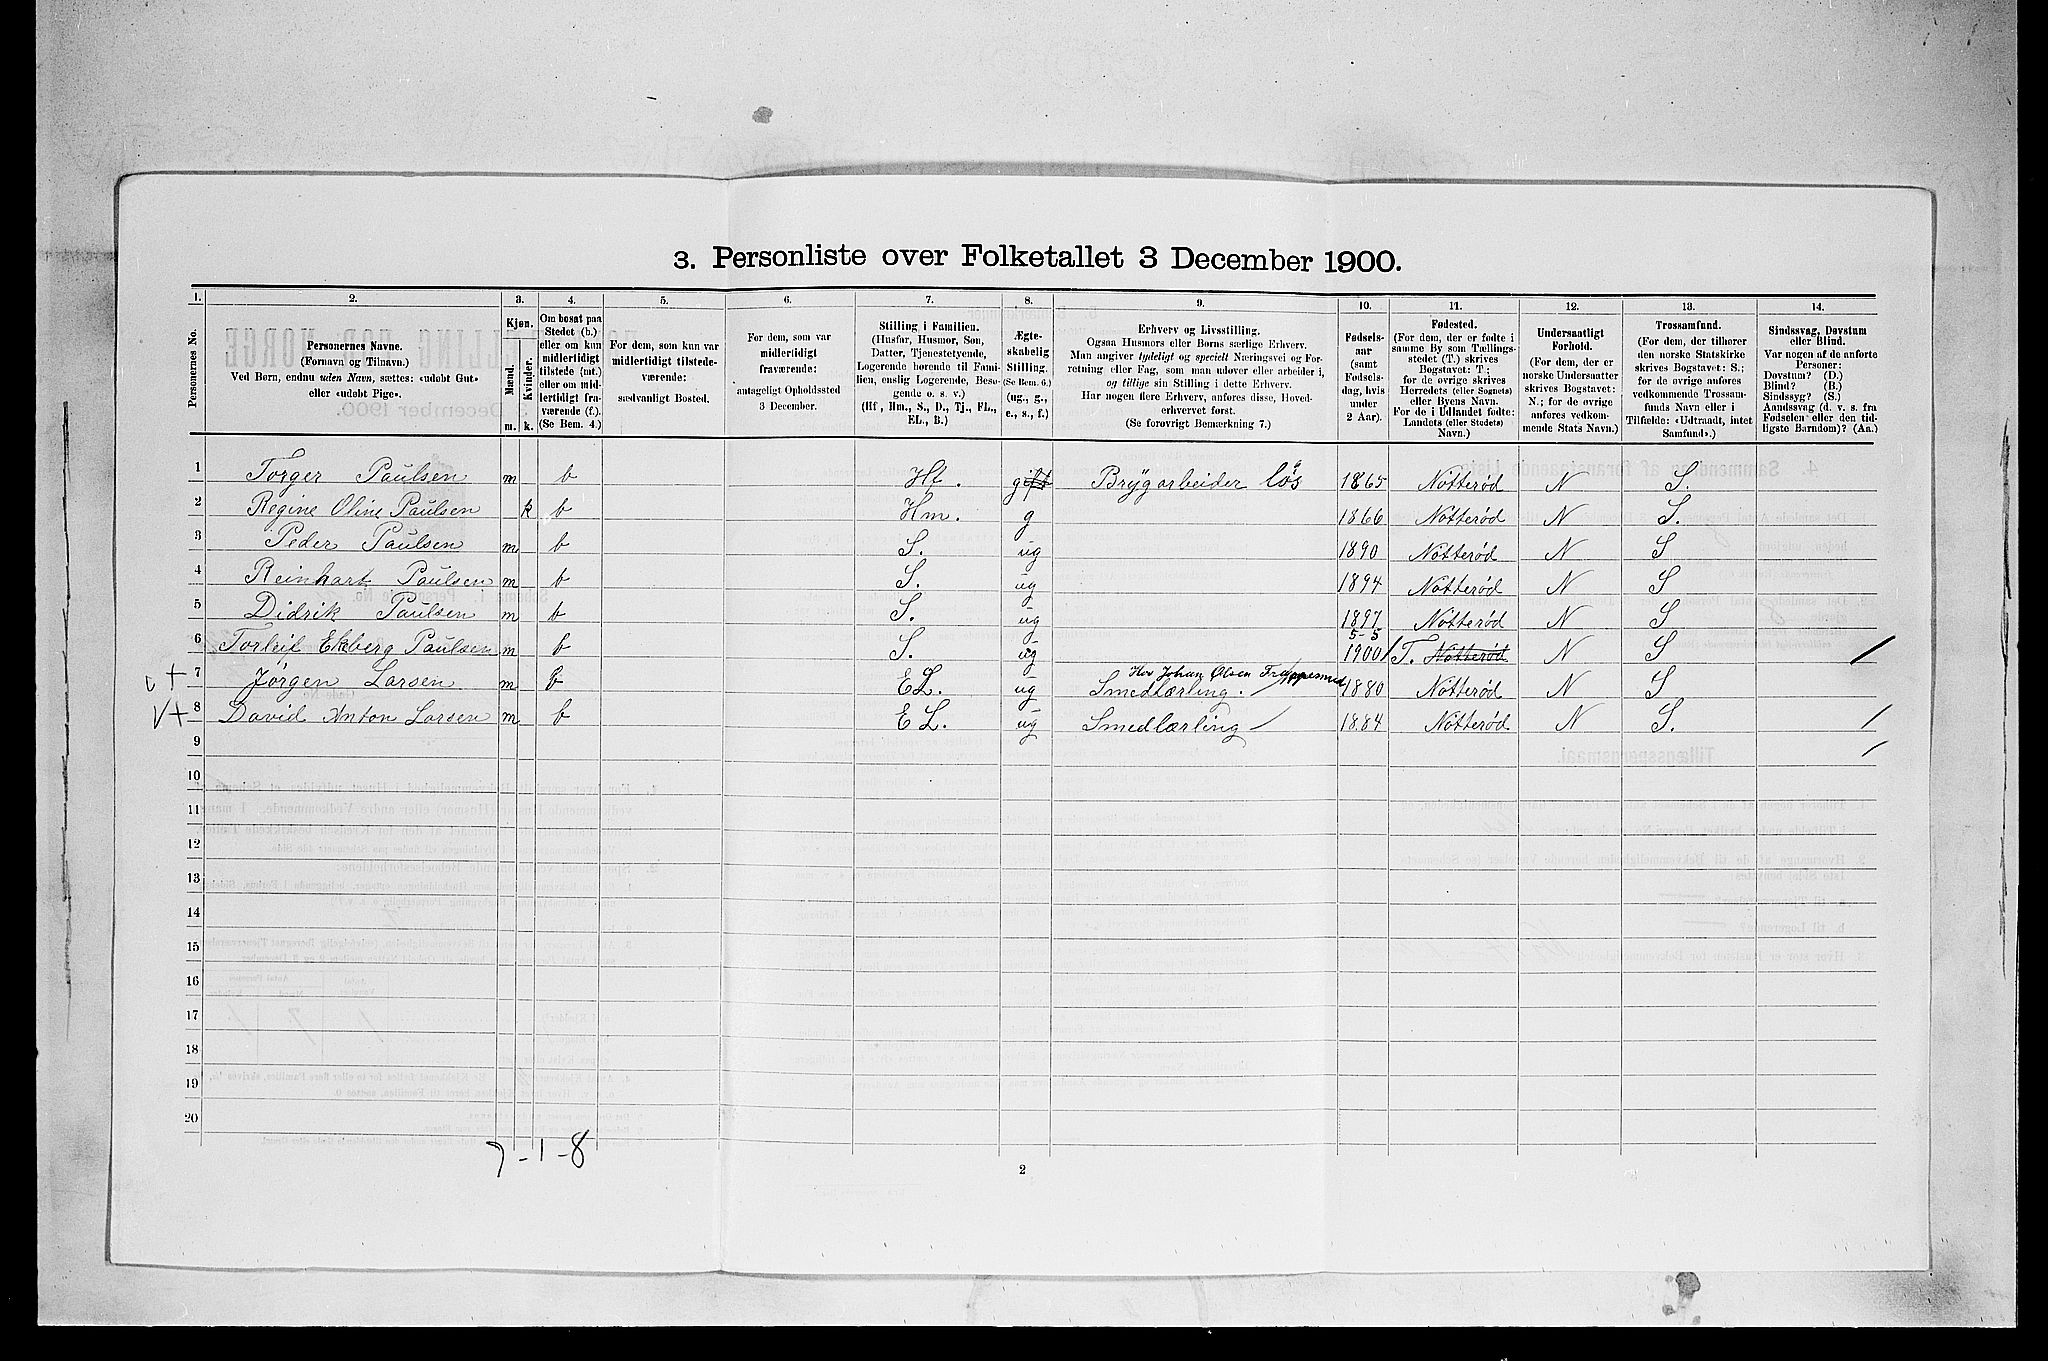 3. Personliste over Folketallet 3 December 1900.
1. 2. 3. 4. 5. 6. 7. 8. 9. 10. 11. 12. 13. 14.
Personernes No.
Personernes Navne.
(Fornavn og Tilnavn.)
Ved Børn, endnu uden Navn, sættes: «udøbt Gut»
eller «udøbt Pige».
Kjøn.
Mænd. Kvinder.
m. k.
Om bosat paa
Stedet (b.)
eller om kun
midlertidigt
tilstede (mt.)
eller om mid-
lertidigt fra-
værende (f.).
(Se Bem. 4.)
For dem, som kun var
midlertidigt tilstede-
værende:
sædvanligt Bosted.
For dem, som var
midlertidigt
fraværende:
antageligt Opholdssted
3 December.
Stilling i Familien.
(Husfar, Husmor, Søn,
Datter, Tjenestetyende,
Logerende hørende til Fami-
lien, enslig Logerende, Besø-
gende o. s. v.)
(Hf, Hm., S., D., Tj., FL.,
EL., B.)
Ægte-
skabelig
Stilling.
(Se Bem. 6.)
(ug., g.,
e., s., f.)
Erhverv og Livsstilling.
Ogsaa Husmors eller Børns særlige Erhverv.
Man angiver tydeligt og specielt Næringsvei og For-
retning eller Fag, som man udøver eller arbeider i,
og tillige sin Stilling i dette Erhverv.
Har nogen flere Erhverv, anføres disse, Hoved-
erhvervet først.
(Se forøvrigt Bemærkning 7.)
Fødsels-
aar
(samt
Fødsels-
dag, hvis
under
2 Aar).
Fødested.
(For dem, der er fødte i
samme By som Tællings-
stedet (T.) skrives
Bogstavet: T.;
for de øvrige skrives
Herredets (eller Sognets)
eller Byens Navn.
For de i Udlandet fødte:
Landets (eller Stedets)
Navn.)
Undersaatligt
Forhold.
(For dem, der er
norske Undersaatter
skrives Bogstavet:
N.; for de øvrige
anføres vedkom-
mende Stats Navn.)
Trossamfund.
(For dem, der tilhører
den norske Statskirke
skrives Bogstavet: S.;
for de øvrige anføres
vedkommende Trossam-
funds Navn eller i
Tilfælde: «Udtraadt, intet
Samfund».)
Sindssvag, Døvstum
eller Blind.
Var nogen af de anførte
Personer:
Døvstum? (D.)
Blind? (B.)
Sindssyg? (S.)
Aandssvag (d. v. s. fra
Fødselen eller den tid-
ligste Barndom)? (Aa.)
1 Torger Paulsen m b Hf. gift Brygarbeider løs 1865 Nötterød N S.
2 Regine Oline Paulsen k b Hm. g 1866 Nötterød N S.
3 Peder Paulsen m b S. ug 1890 Nötterød N S
4 Reinhart Paulsen m b S. ug 1894 Nötterød N S
5 Didrik Paulsen m b S. ug 1897 Nötterød N S
6 Torleif Ekberg Paulsen m b S. ug 5-5 1900 T. Nötterød N S
Hos Johan Olsen
7 Jørgen Larsen m b EL. ug Smedlærling. 1880 Nötterød N S
8 David Anton Larsen m b EL. ug Smedlærling 1884 Nötterød N S.
9
10
11
12
13
14
15
16
17
18
19
20
7-1-8
2